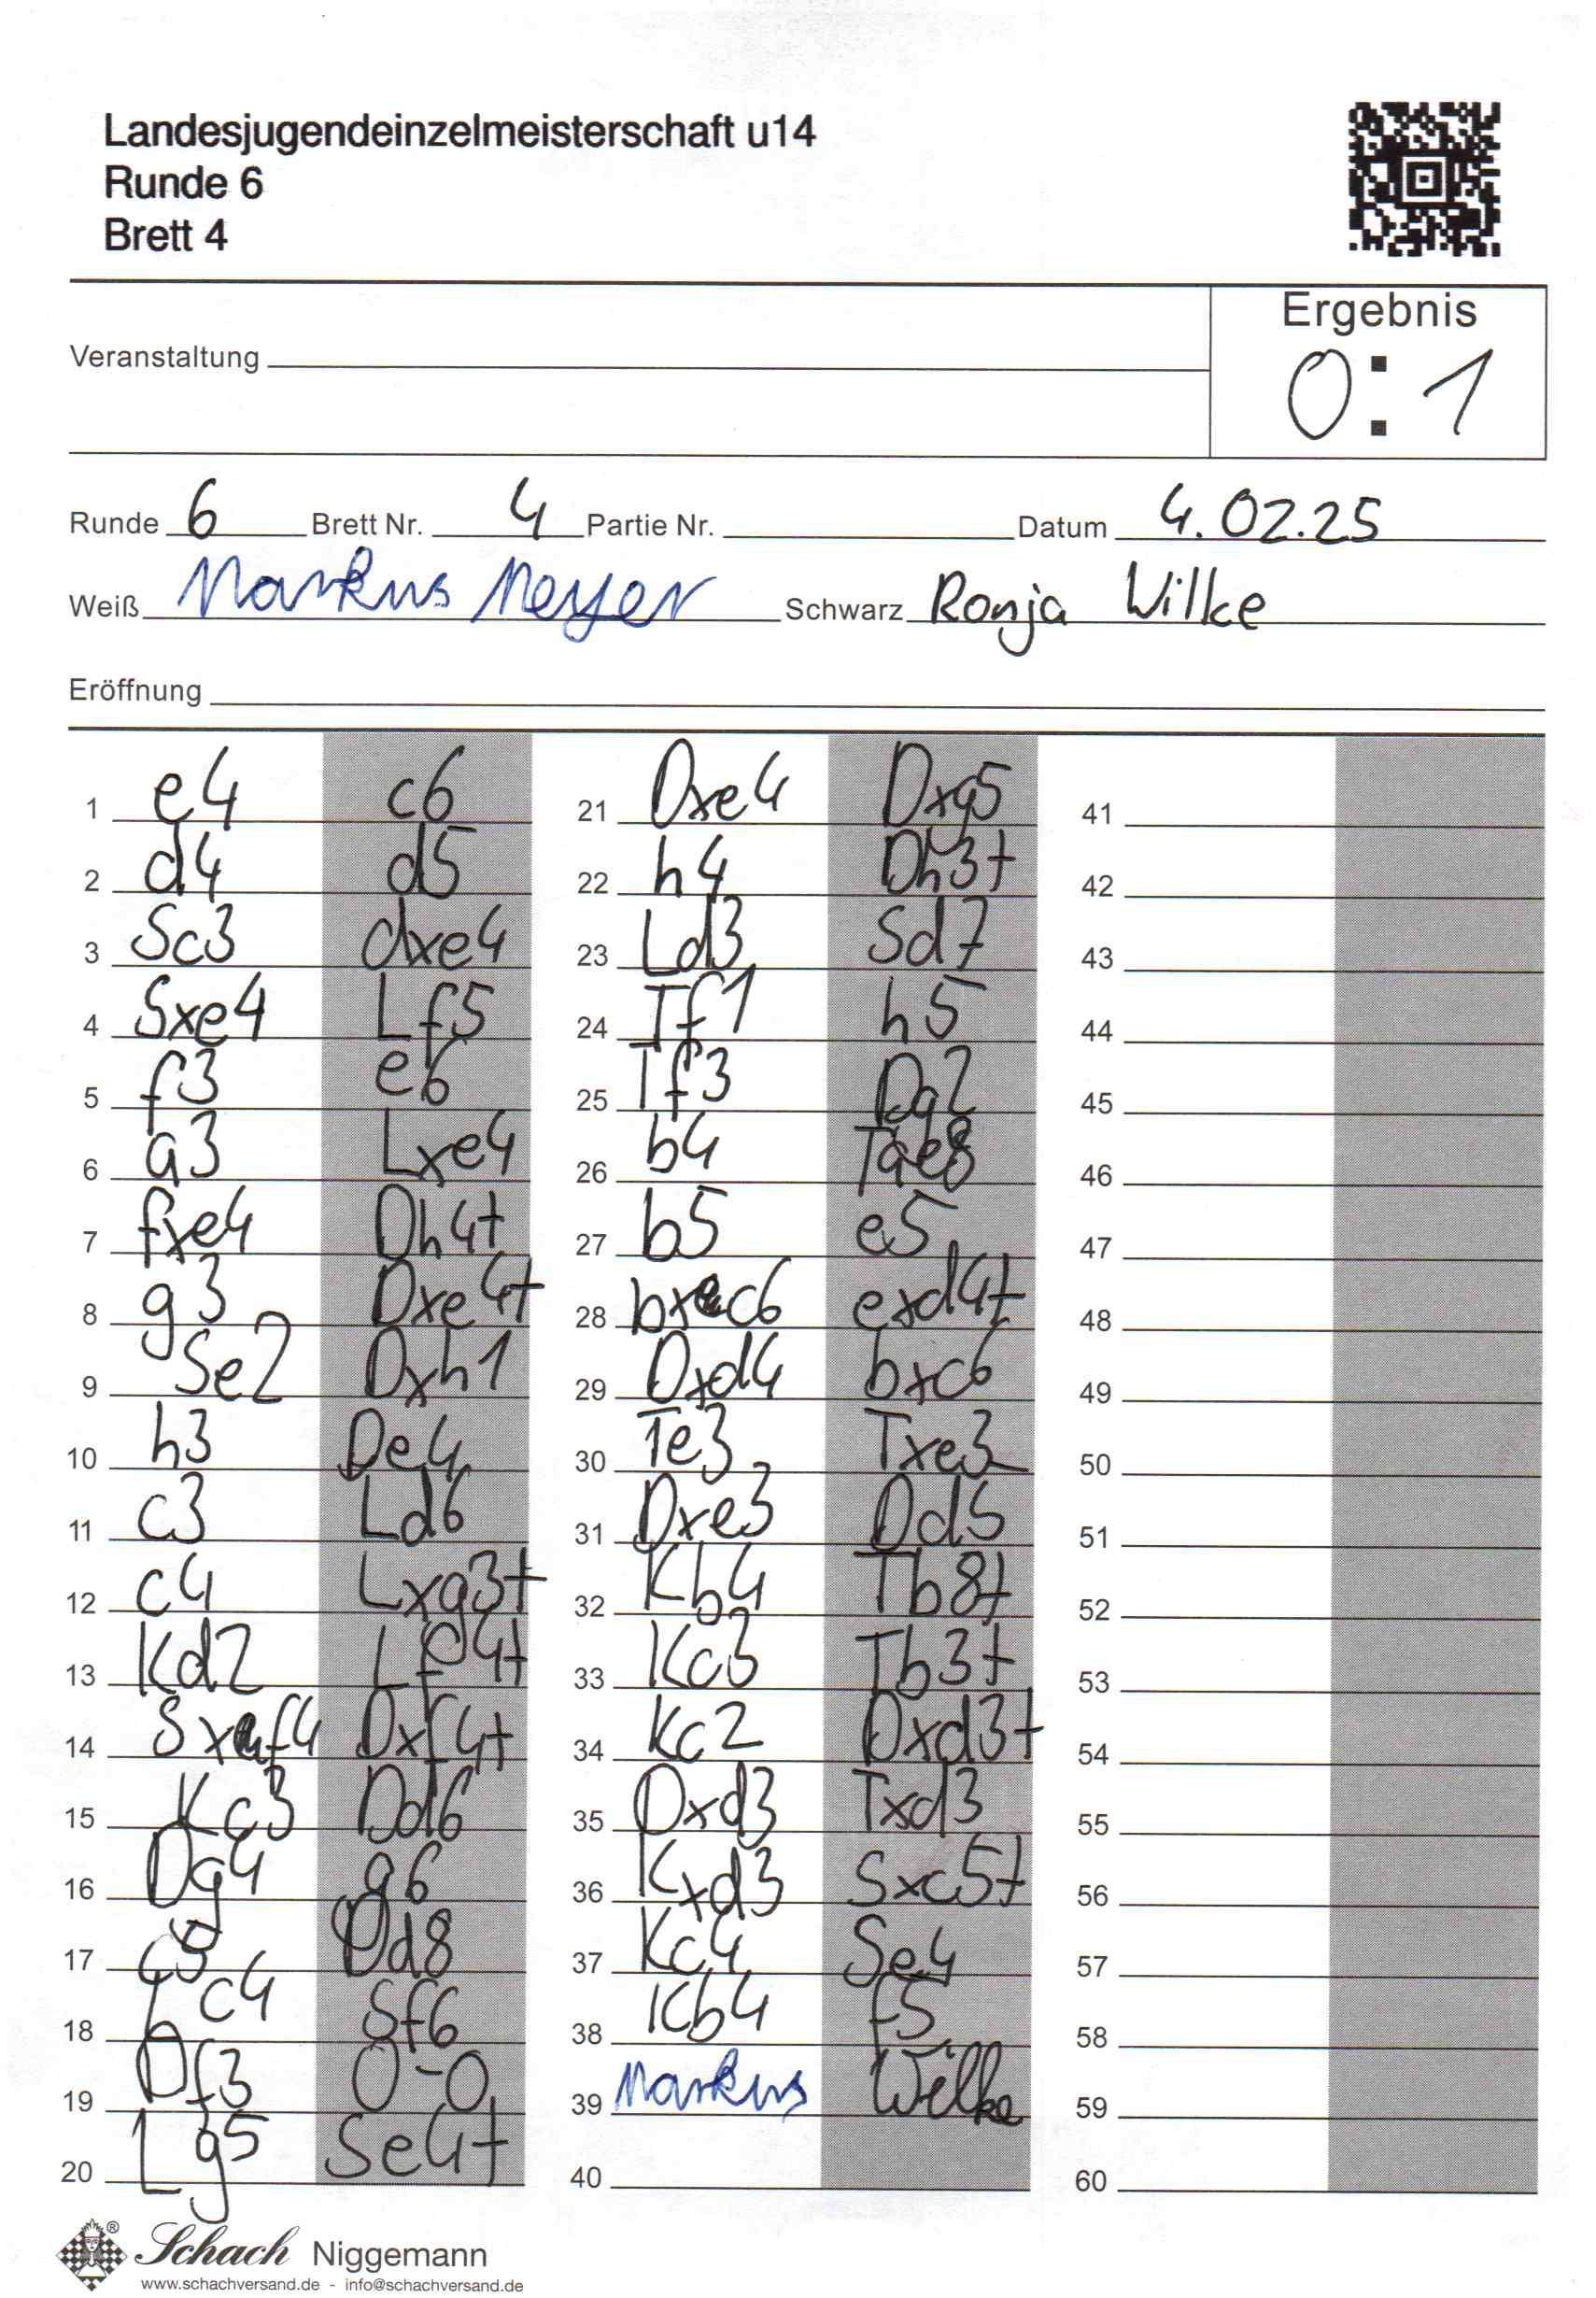 Landesjugendeinzelmeisterschaft u14
Runde 6
Brett 4
Ergebnis
0:1
Veranstaltung
Runde 6 Brett Nr. 4 Partie Nr. Datum 4.02.25
Weiß Markus Meyer Schwarz Ronja Wilke
Eröffnung
1 e4 c6
2 d4 d5
3 Sc3 dxe4
4 Sxe4 Lf5
5 f3 e6
6 a3 Lxe4
7 fxe4 Dh4+
8 g3 Dxe4+
9 Se2 Dxh1
10 h3 De4
11 c3 Ld6
12 c4 Lxg3+
13 Kd2 Lf4+
14 Sxf4 Dxf4+
15 Kc3 Dd6
16 Dg4 g6
17 c5 Dd8
18 Lc4 Sf6
19 Df3 0-0
20 Lg5 Se4+
21 Dxe4 Dxg5
22 h4 Dh3+
23 Ld3 Sd7
24 Tf1 h5
25 Tf3 Dg2
26 b4 Tae8
27 b5 e5
28 bxc6 exd4+
29 Dxd4 bxc6
30 Te3 Txe3
31 Dxe3 Dd5
32 Kb4 Tb8+
33 Kc3 Tb3+
34 Kc2 Dxd3+
35 Dxd3 Txd3
36 Kxd3 Sxc5+
37 Kc4 Se4
38 Kb4 f5
39 Markus Wilke
40
41
42
43
44
45
46
47
48
49
50
51
52
53
54
55
56
57
58
59
60
Schach Niggemann
www.schachversand.de - info@schachversand.de